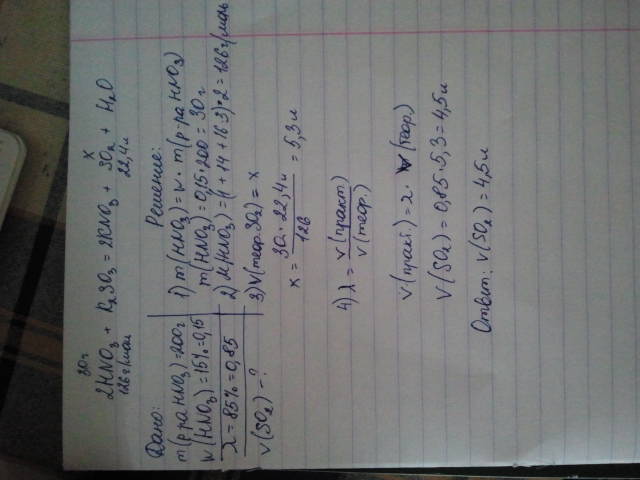 30г x
2HNO₃ + K₂SO₃ = 2KNO₃ + SO₂ + H₂O
126г/моль 22,4л
Дано:
m(р-ра HNO₃)=200г
W(HNO₃)=15%=0,15
λ=85%=0,85
V(SO₂)-?
Решение:
1) m(HNO₃)=w·m(р-ра HNO₃)
m(HNO₃)=0,15·200=30г
2) M(HNO₃)=(1+14+16·3)·2=126г/моль
3) V(теор. SO₂)=x
x = 30·22,4л / 126 = 5,3л
4) λ = V(практ.) / V(теор.)
V(практ.)=λ·V(теор.)
V(SO₂)=0,85·5,3=4,5л
Ответ: V(SO₂)=4,5л